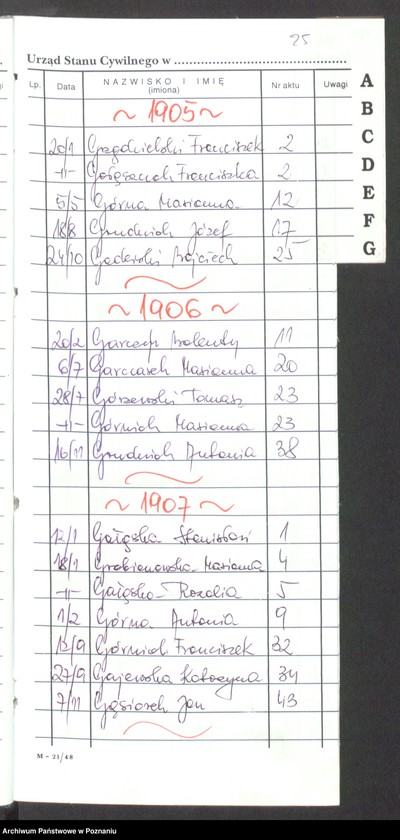 25
Urząd Stanu Cywilnego w
Lp. Data NAZWISKO I IMIĘ (imiona) Nr aktu Uwagi
A
B
C
D
E
F
G
~ 1905 ~
20/1 Franciszek 2
-"- Franciszka 2
5/5 Górna Marianna 12
18/8 Grudnich Józef 17
24/10 Wojciech 25
~ 1906 ~
20/2 Walenty 11
6/7 Garczarek Marianna 20
28/7 Górzewski Tomasz 23
-"- Górniak Marianna 23
16/11 Grudnich Antonia 38
~ 1907 ~
12/1 Gałązka Stanisław 1
18/1 Grabianowska Marianna 4
-"- Gałązka Rozalia 5
1/2 Górna Antonia 9
12/9 Górniak Franciszek 32
27/9 Gajewska Katarzyna 34
7/11 Gąsiorek Jan 43
M - 21/48
Archiwum Państwowe w Poznaniu